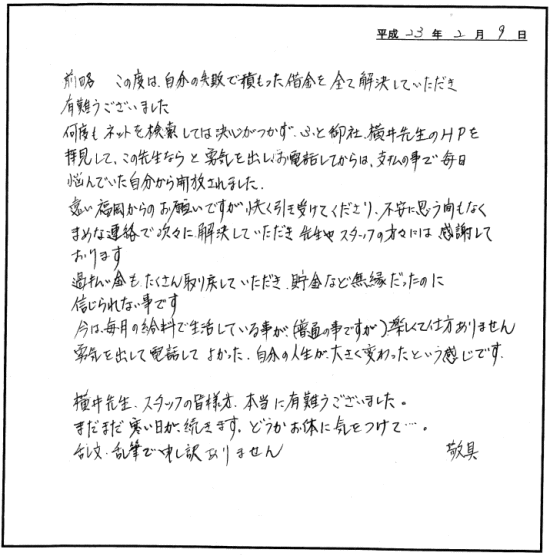 平成23年2月9日
前略　この度は、自分の失敗で積もった借金を全て解決していただき
有難うございました
何度もネットを検索しては決心がつかず、ふと御社、横井先生のHPを
拝見して、この先生ならと勇気を出しお電話してからは、支払の事で毎日
悩んでいた自分から開放されました。
遠い福岡からのお願いですが快く引き受けてくださり、不安に思う間もなく
まめな連絡で次々に解決していただき先生やスタッフの方々には感謝して
おります
過払い金もたくさん取り戻していただき、貯金など無縁だったのに
信じられない事です
今は、毎月の給料で生活している事が、(普通の事ですが)楽しくて仕方ありません
勇気を出して電話してよかった、自分の人生が大きく変わったという感じです。
横井先生、スタッフの皆様方、本当に有難うございました。
まだまだ寒い日が、続きます。どうかお体に気をつけて…。
乱文・乱筆で申し訳ありません　敬具